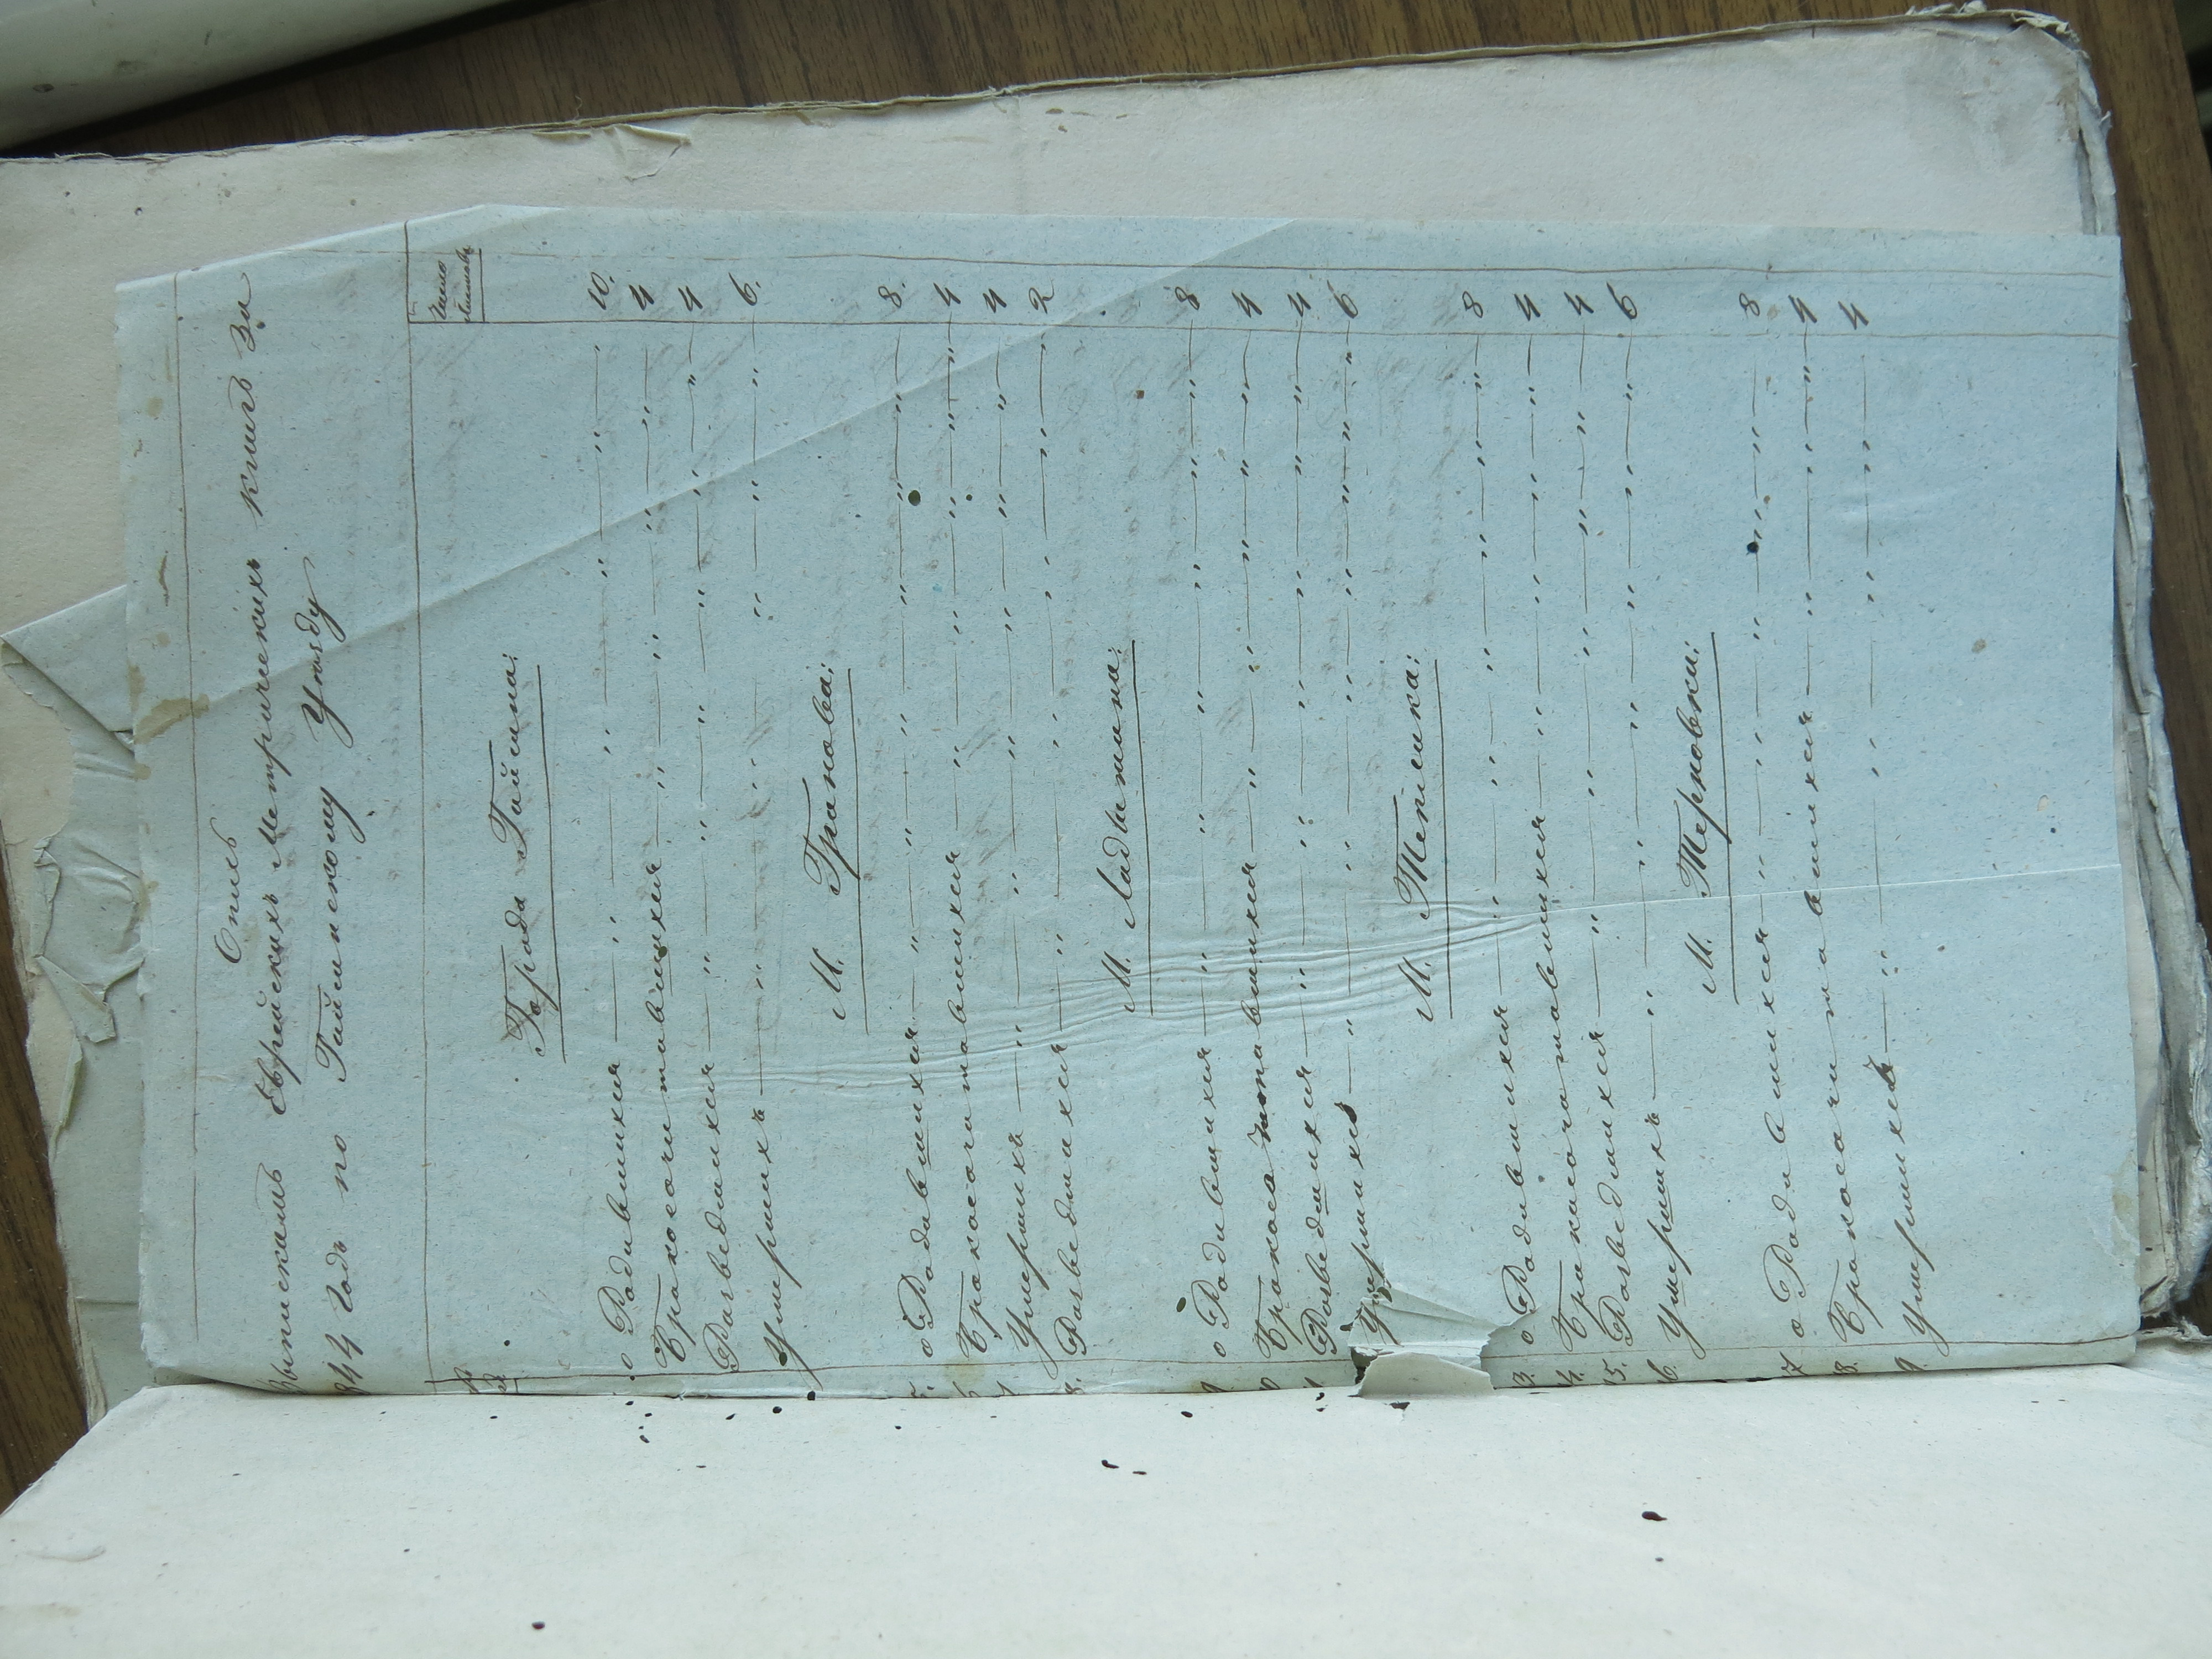 Опись
выпискамъ Еврейскихъ Метрическихъ книгъ за
844 годъ по Гайсинскому Уѣзду
Число листовъ
Города Гайсина:
о Родившихся — " — " — " — " — " 10.
Бракосочитавшихся — " — " — " — " 4
Разведшихся — " — " — " — " — " 4
Умершихъ — " — " — " — " — " 6.
М. Гранова:
5. о Родившихся — " — " — " — " — " 8.
6 Бракосочитавшихся — " — " — " — " 4
7 Умершихъ — " — " — " — " — " 4
8. Разведшихся — " — " — " — " — " 2
М. Ладыжина:
9. о Родившихся — " — " — " — " — " 8
0 Бракосочитавшихся — " — " — " — " 4
1 Разведшихся — " — " — " — " — " 4
Умершихъ — " — " — " — " — " 6
М. Теплика:
3. о Родившихся — " — " — " — " — " 8
4. Бракосочитавшихся — " — " — " — " 4
5. Разведшихся — " — " — " — " — " 4
6. Умершихъ — " — " — " — " — " 6
М. Терновки:
7 о Родившихся — " — " — " — " — " 8
8. Бракосочитавшихся — " — " — " 4
9. Умершихъ — " — " — " — " — " 4